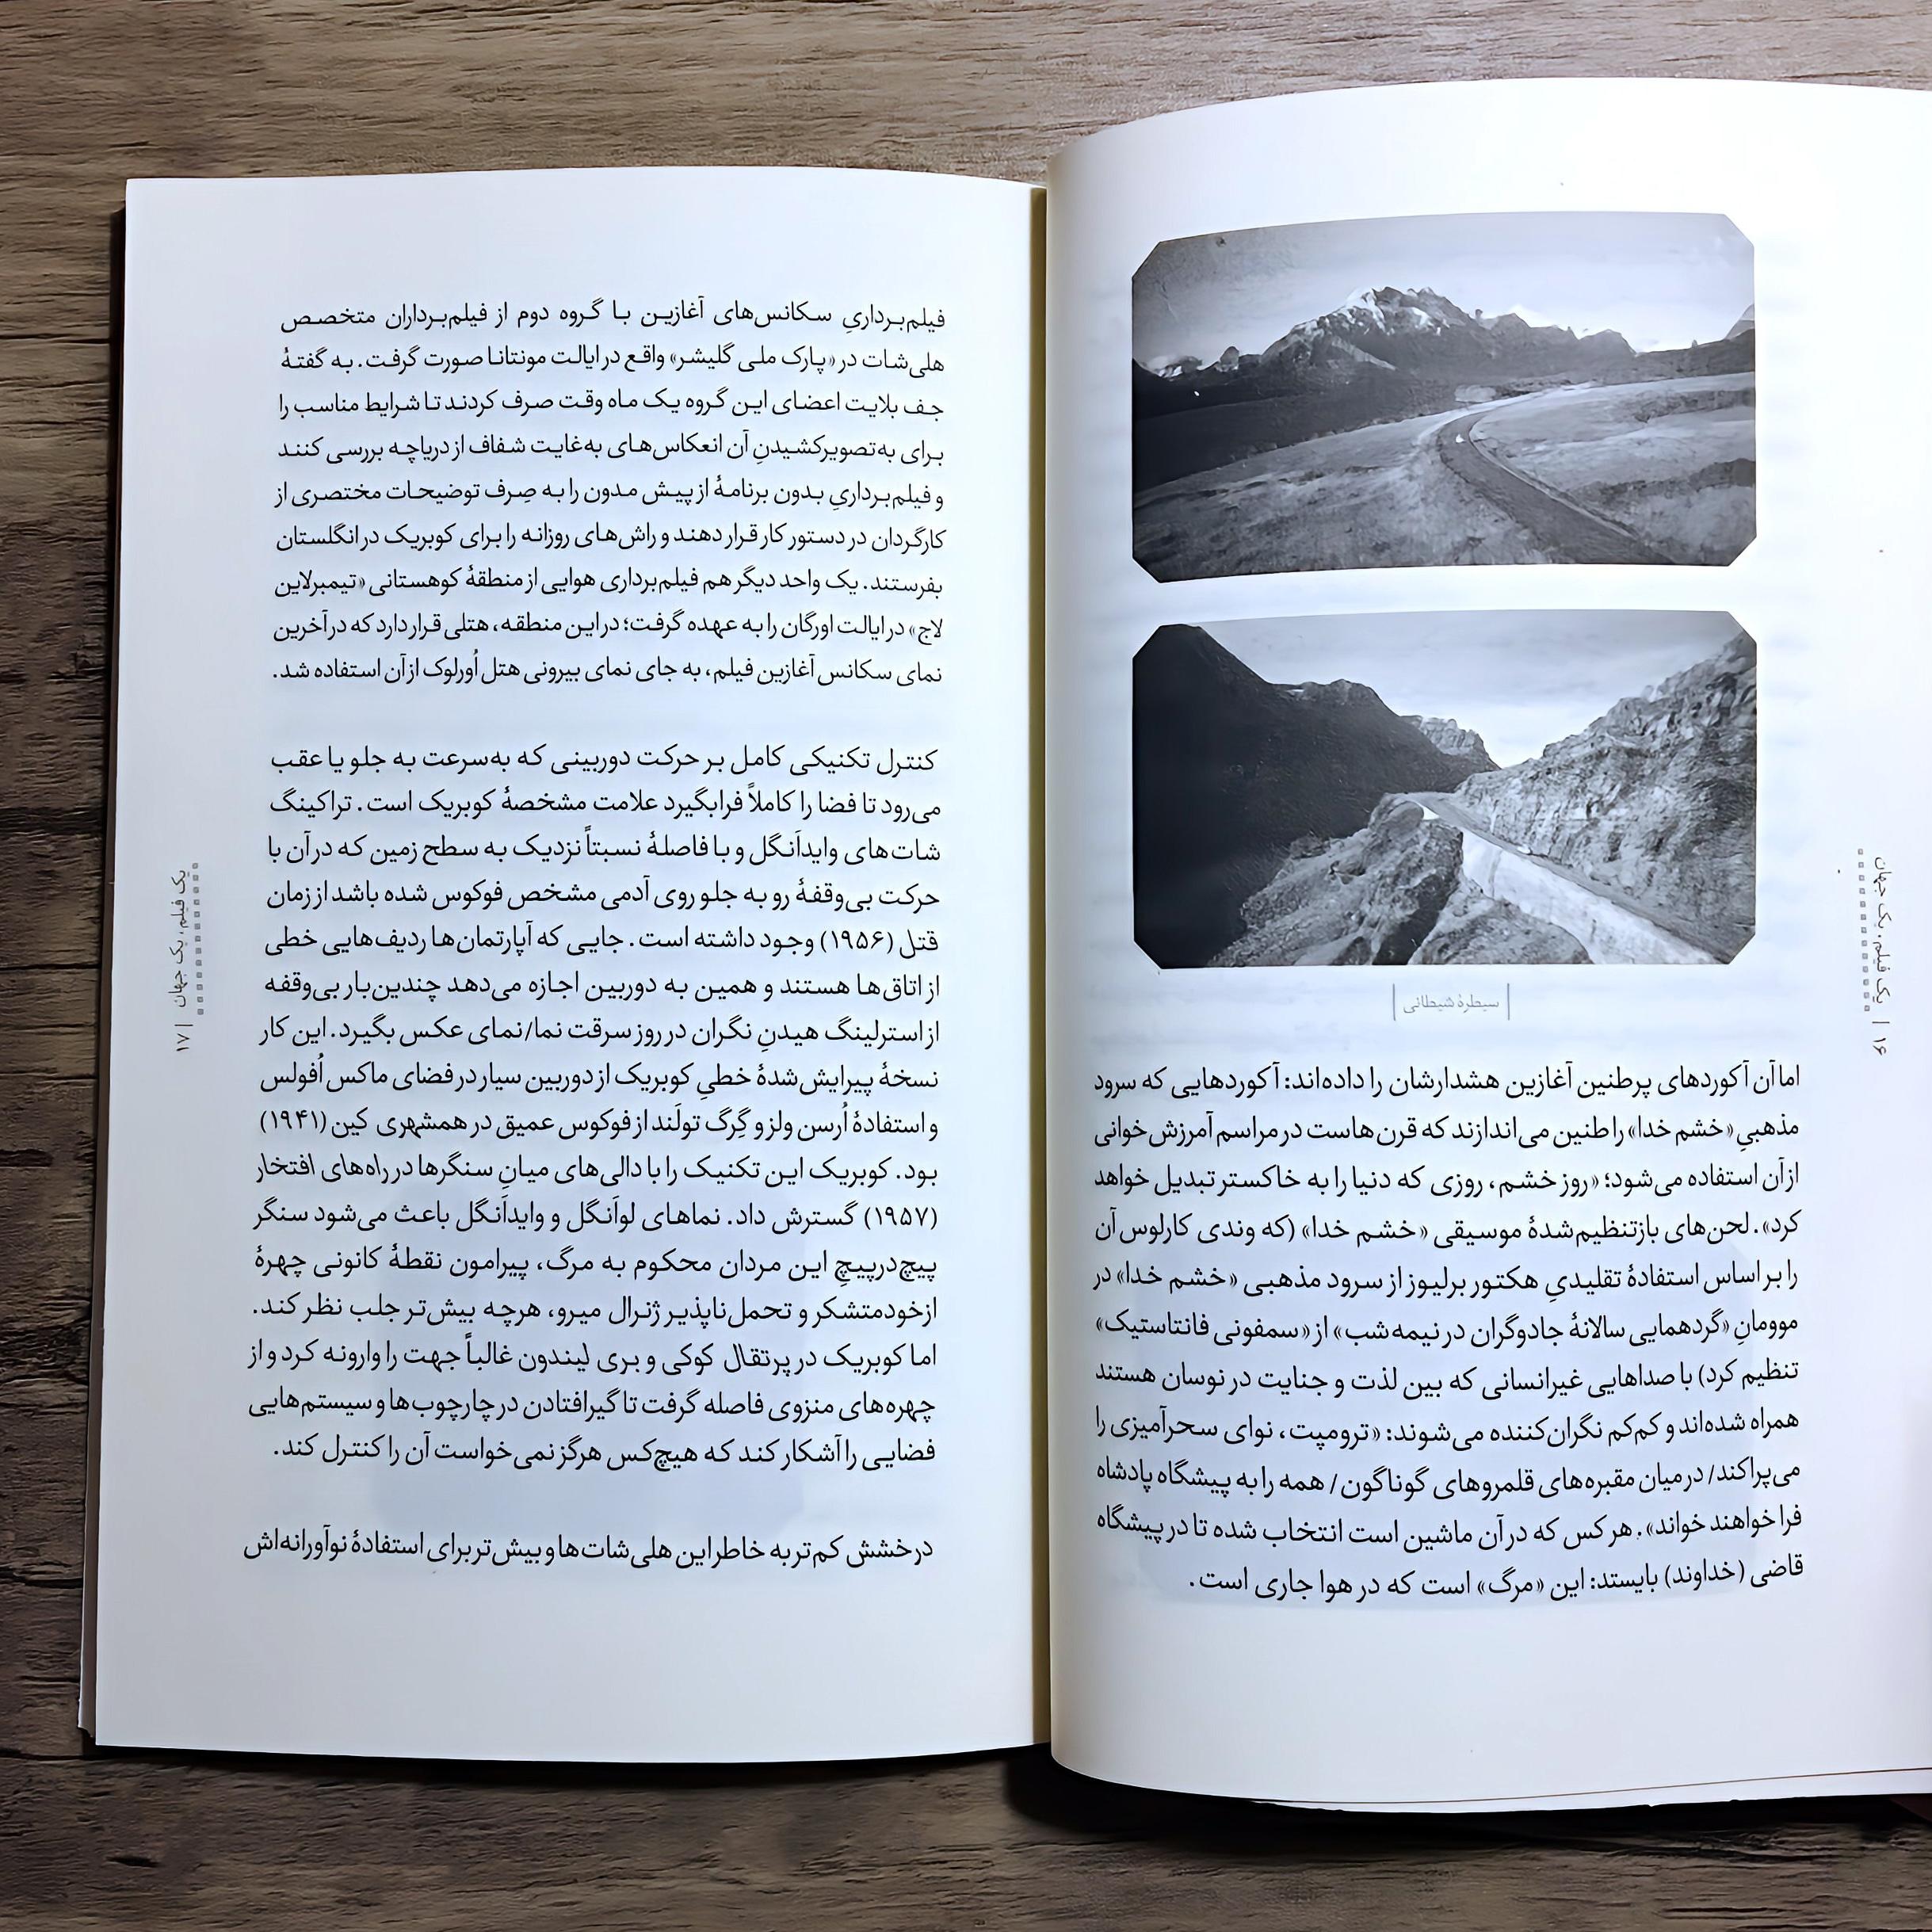 سیطرهٔ شیطانی
اما آن آکوردهای پرطنین آغازین هشدارشان را داده‌اند: آکوردهایی که سرود
مذهبیِ «خشم خدا» را طنین می‌اندازند که قرن‌هاست در مراسم آمرزش‌خوانی
از آن استفاده می‌شود؛ «روز خشم، روزی که دنیا را به خاکستر تبدیل خواهد
کرد». لحن‌های بازتنظیم‌شدهٔ موسیقی «خشم خدا» (که وندی کارلوس آن
را بر اساس استفادهٔ تقلیدیِ هکتور برلیوز از سرود مذهبی «خشم خدا» در
موومانِ «گردهمایی سالانهٔ جادوگران در نیمه‌شب» از «سمفونی فانتاستیک»
تنظیم کرد) با صداهایی غیرانسانی که بین لذت و جنایت در نوسان هستند
همراه شده‌اند و کم‌کم نگران‌کننده می‌شوند: «ترومپت، نوای سحرآمیزی را
می‌پراکند/ در میان مقبره‌های قلمروهای گوناگون/ همه را به پیشگاه پادشاه
فرا خواهند خواند». هر کس که در آن ماشین است انتخاب شده تا در پیشگاه
قاضی (خداوند) بایستد: این «مرگ» است که در هوا جاری است.
۱۶ | یک فیلم، یک جهان
فیلم‌برداریِ سکانس‌های آغازین با گروه دوم از فیلم‌برداران متخصص
هلی‌شات در «پارک ملی گلیشر» واقع در ایالت مونتانا صورت گرفت. به گفتهٔ
جف بلایت اعضای این گروه یک ماه وقت صرف کردند تا شرایط مناسب را
برای به‌تصویرکشیدنِ آن انعکاس‌های به‌غایت شفاف از دریاچه بررسی کنند
و فیلم‌برداریِ بدون برنامهٔ از پیش مدون را به صِرف توضیحات مختصری از
کارگردان در دستور کار قرار دهند و راش‌های روزانه را برای کوبریک در انگلستان
بفرستند. یک واحد دیگر هم فیلم‌برداری هوایی از منطقهٔ کوهستانی «تیمبرلاین
لاج» در ایالت اورگان را به عهده گرفت؛ در این منطقه، هتلی قرار دارد که در آخرین
نمای سکانس آغازین فیلم، به جای نمای بیرونی هتل اُورلوک از آن استفاده شد.
کنترل تکنیکی کامل بر حرکت دوربینی که به‌سرعت به جلو یا عقب
می‌رود تا فضا را کاملاً فرابگیرد علامت مشخصهٔ کوبریک است. تراکینگ
شات‌های وایدآنگل و با فاصلهٔ نسبتاً نزدیک به سطح زمین که در آن با
حرکت بی‌وقفهٔ رو به جلو روی آدمی مشخص فوکوس شده باشد از زمان
قتل (۱۹۵۶) وجود داشته است. جایی که آپارتمان‌ها ردیف‌هایی خطی
از اتاق‌ها هستند و همین به دوربین اجازه می‌دهد چندین‌بار بی‌وقفه
از استرلینگ هیدنِ نگران در روز سرقت نما/نمای عکس بگیرد. این کار
نسخهٔ پیرایش‌شدهٔ خطیِ کوبریک از دوربین سیار در فضای ماکس اُفولس
و استفادهٔ اُرسن ولز و گِرگ تولَند از فوکوس عمیق در همشهری کین (۱۹۴۱)
بود. کوبریک این تکنیک را با دالی‌های میانِ سنگرها در راه‌های افتخار
(۱۹۵۷) گسترش داد. نماهای لوآنگل و وایدآنگل باعث می‌شود سنگر
پیچ‌درپیچِ این مردان محکوم به مرگ، پیرامون نقطهٔ کانونی چهرهٔ
ازخودمتشکر و تحمل‌ناپذیر ژنرال میرو، هرچه بیش‌تر جلب نظر کند.
اما کوبریک در پرتقال کوکی و بری لیندون غالباً جهت را وارونه کرد و از
چهره‌های منزوی فاصله گرفت تا گیرافتادن در چارچوب‌ها و سیستم‌هایی
فضایی را آشکار کند که هیچ‌کس هرگز نمی‌خواست آن را کنترل کند.
درخشش کم‌تر به خاطر این هلی‌شات‌ها و بیش‌تر برای استفادهٔ نوآورانه‌اش
یک فیلم، یک جهان | ۱۷